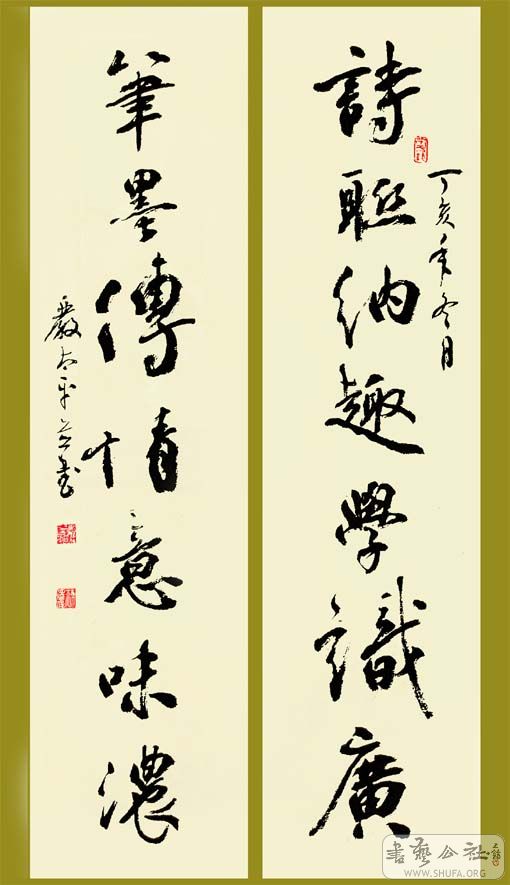 詩聯納趣學識廣
丁亥年冬月
筆墨傳情意味濃
嚴太平並書
書藝公社
WWW.SHUFA.ORG